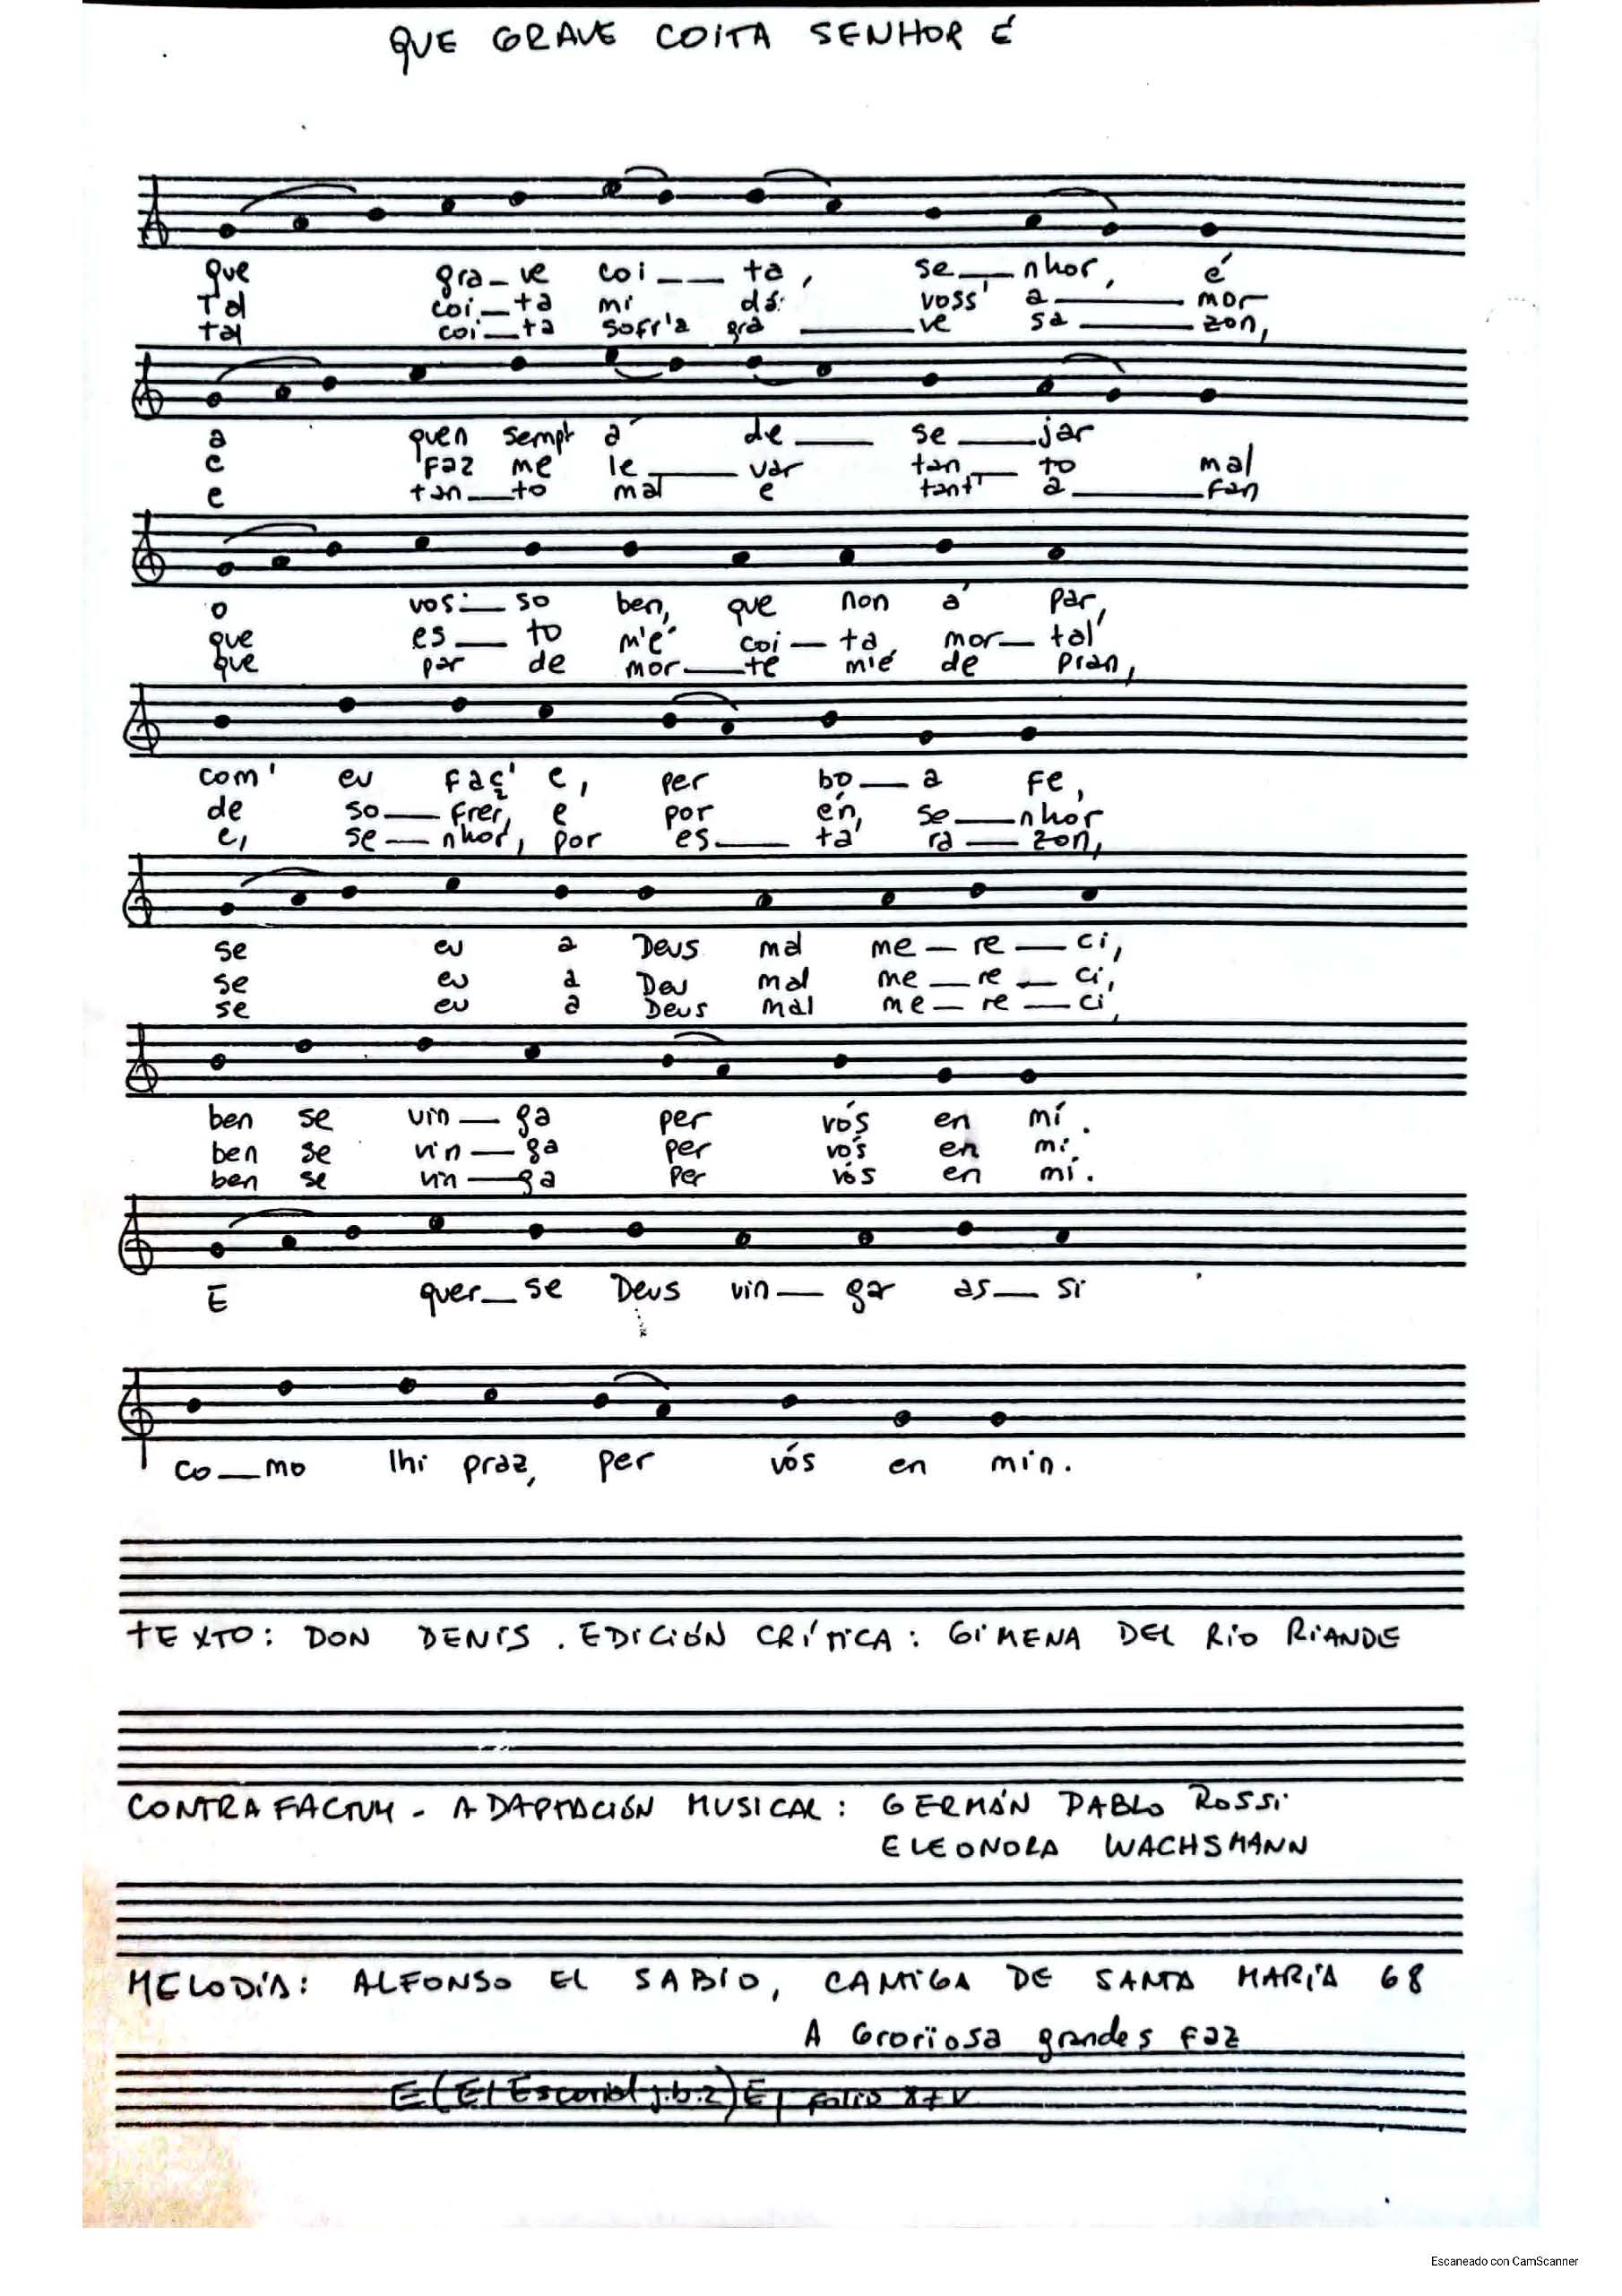 QUE GRAVE COITA SENHOR É
que gra_ve coi__ta, se_nhor, é
Tal coi_ta mi dá voss' a_mor
tal coi_ta sofr'a gra_ve sa_zon,
a quen sempr á de_se_jar
e faz me le_var tan_to mal
e tan_to mal e tant' a_fan
o vos_so ben, que non á par,
que es_to m'é coi_ta mor_tal
que par de mor_te m'é de pran,
com' eu faç' e, per bo_a fe,
de so_frer, e por én, se_nhor
e, se_nhor, por es_ta ra_zon,
se eu a Deus mal me_re_ci,
se eu a Deu mal me_re_ci,
se eu a Deus mal me_re_ci,
ben se vin_ga per vós en mí.
ben se vin_ga per vós en mí.
ben se vin_ga per vós en mí.
E quer_se Deus vin_gar as_si
co_mo lhi praz, per vós en min.
TEXTO: DON DENIS. EDICIÓN CRÍTICA: GIMENA DEL RIO RIANDE
CONTRAFACTUM - ADAPTACIÓN MUSICAL: GERMÁN PABLO ROSSI
ELEONORA WACHSMANN
MELODÍA: ALFONSO EL SABIO, CANTIGA DE SANTA MARÍA 68
A Grorïosa grandes faz
E (El Escorial j.b.2) E, folio
Escaneado con CamScanner